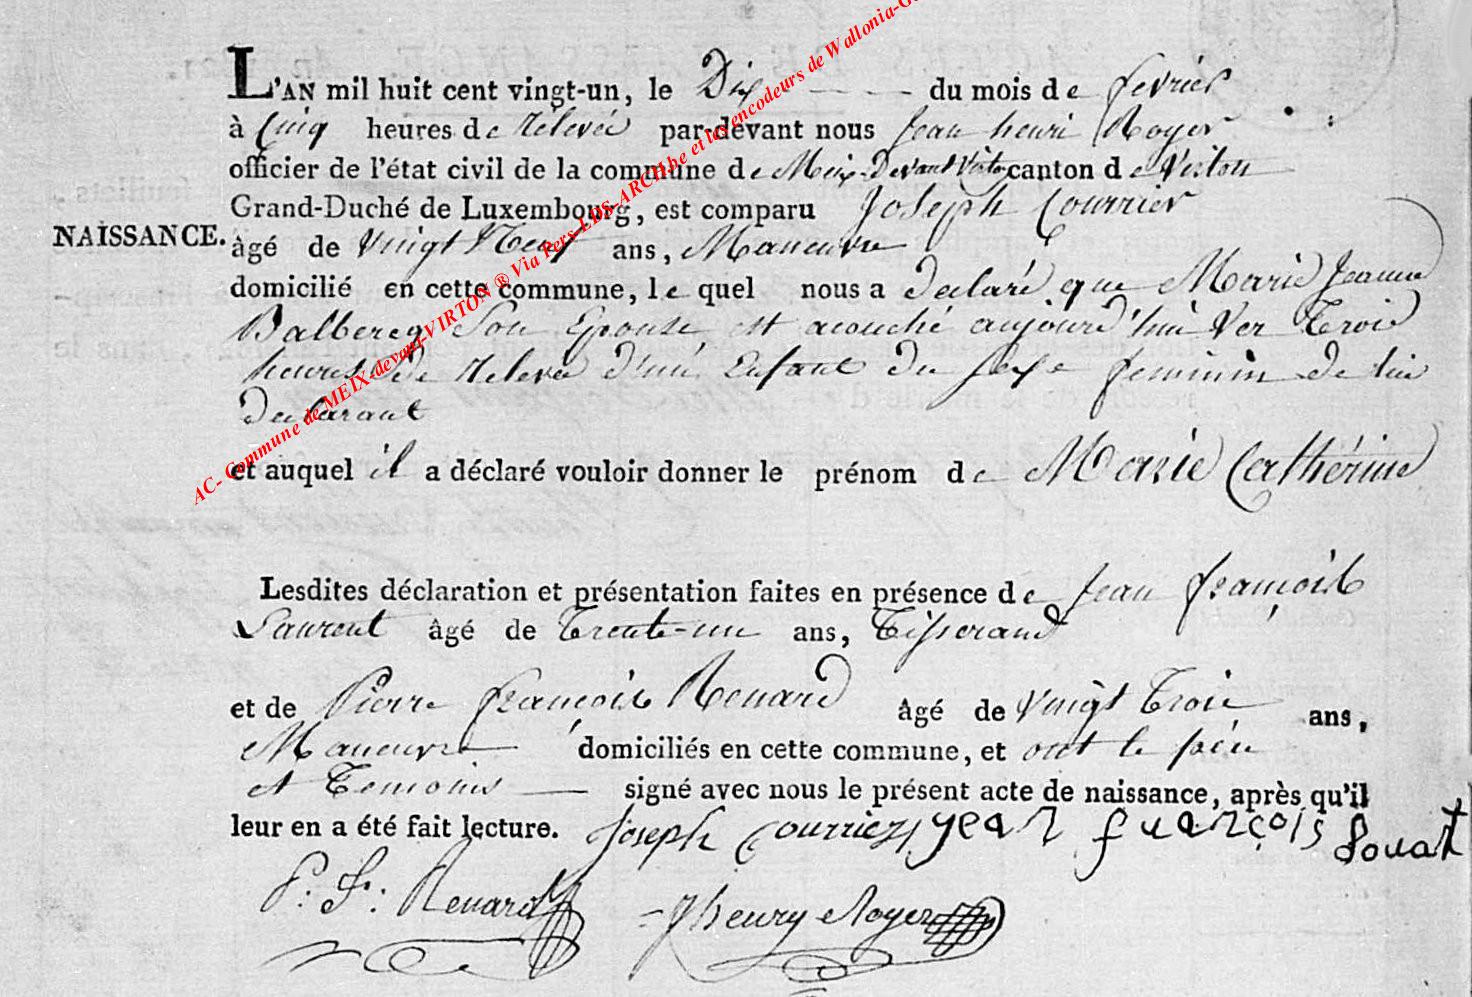 L'AN mil huit cent vingt-un, le Dix du mois de fevrier
à Cinq heures de rélevée par-devant nous Jean henri Royer
officier de l'état civil de la commune de Meix-Devant Virton canton de Virton
Grand-Duché de Luxembourg, est comparu Joseph Courrier
NAISSANCE.
âgé de Vingt Neuf ans, Maneuvre
domicilié en cette commune, le quel nous a declaré que Marie Jeanne
Balbereg Son Epouse est acouché aujourd'hui Ver Trois
heures De relevée D'un Enfant Du sexe feminin De lui
Declarant
et auquel il a déclaré vouloir donner le prénom de Marie Cathérine
Lesdites déclaration et présentation faites en présence de Jean françois
Laurent âgé de Trente-un ans, Tisserand
et de Pierre françois Renard âgé de Vingt Trois ans,
Maneuvre domiciliés en cette commune, et ont le père
et Temoins signé avec nous le présent acte de naissance, après qu'il
leur en a été fait lecture. Joseph Courrier jean françois
P. F. Renard Jhenry Royer
AC- Commune de MEIX-devant-VIRTON ® Via Pers-LDS-ARCH.be et les encodeurs de Wallonia-G